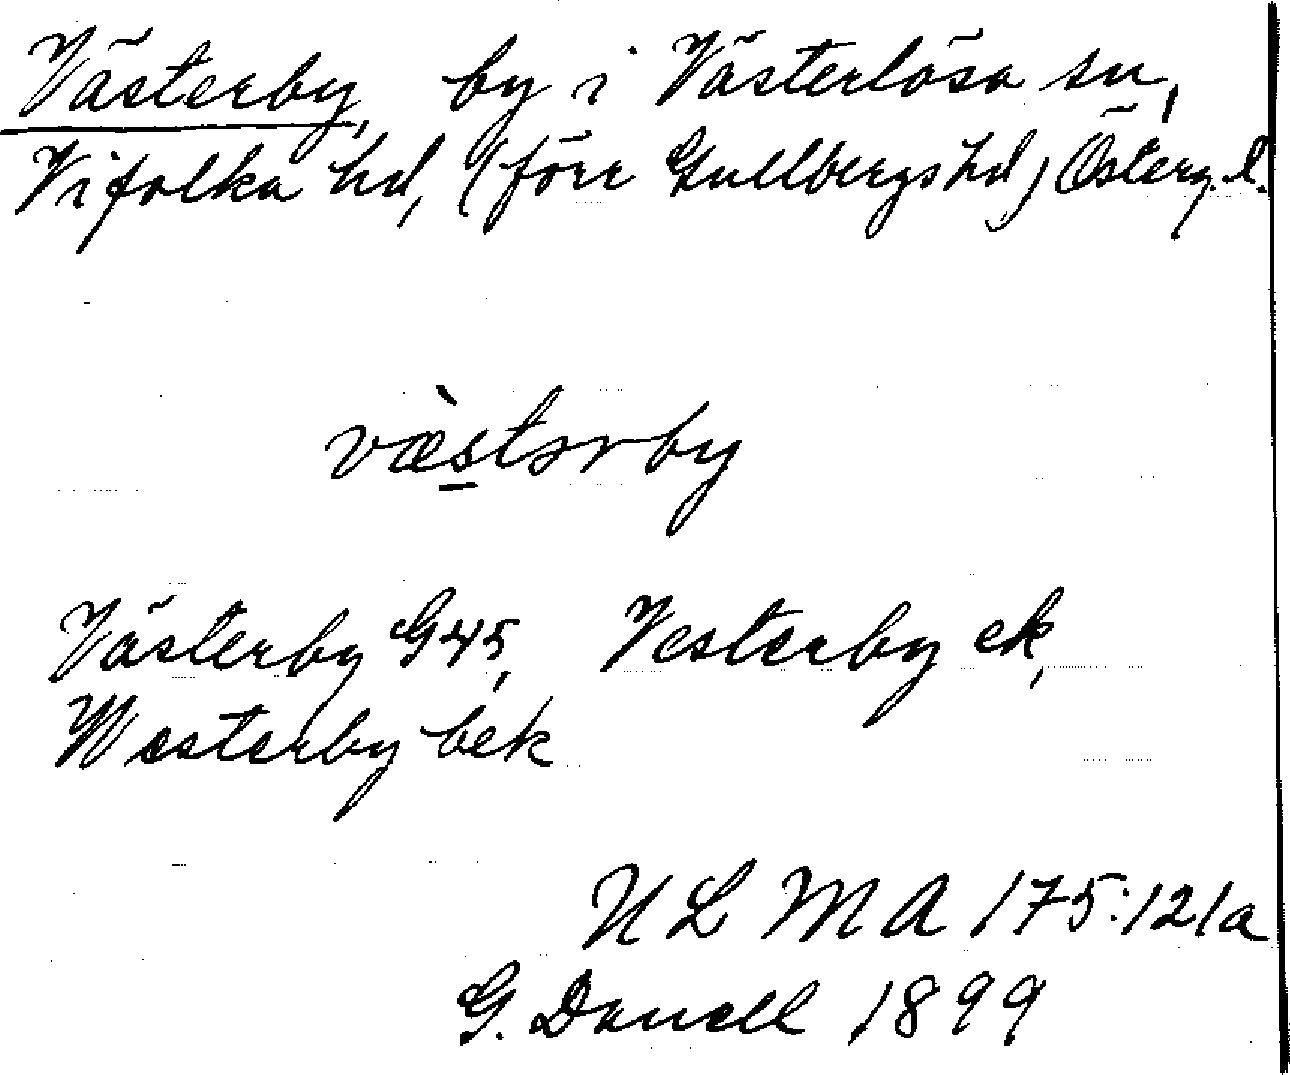 Västerby, by i Västerlösa sn,
Vifolka hd, (förr Gullbergs hd) Österg. l.
væ̀stərby
Västerby G45, Vesterby ek,
Westerby bek
ULMA 175:121a
G. Danell 1899